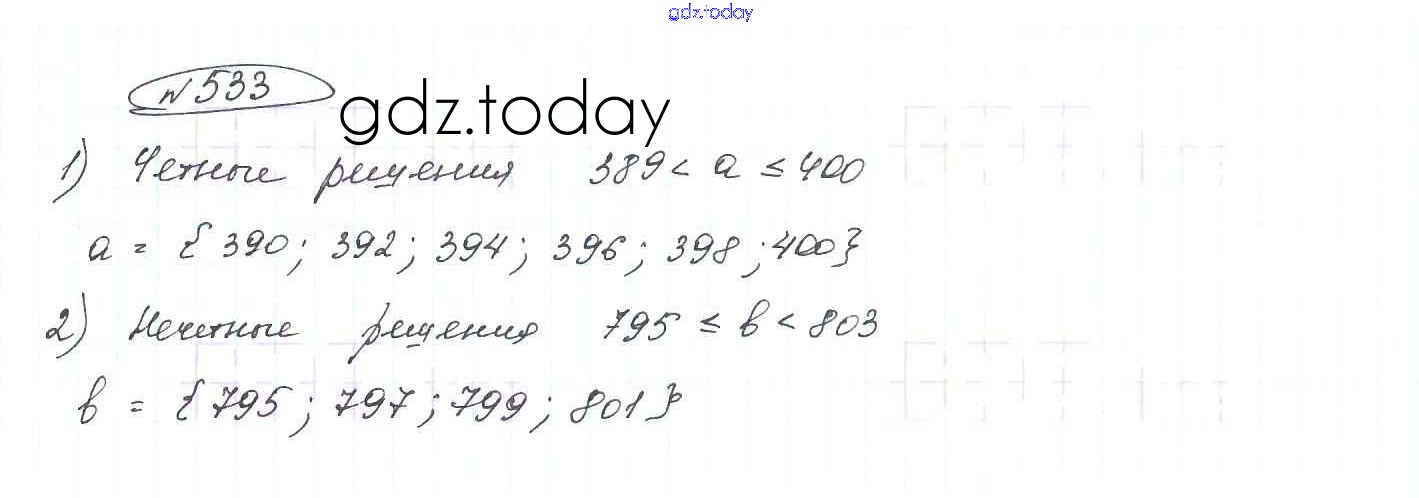 gdz.today
№533
gdz.today
1) Четные решения 389 < a ≤ 400
a = {390; 392; 394; 396; 398; 400}
2) Нечетные решения 795 ≤ в < 803
в = {795; 797; 799; 801}